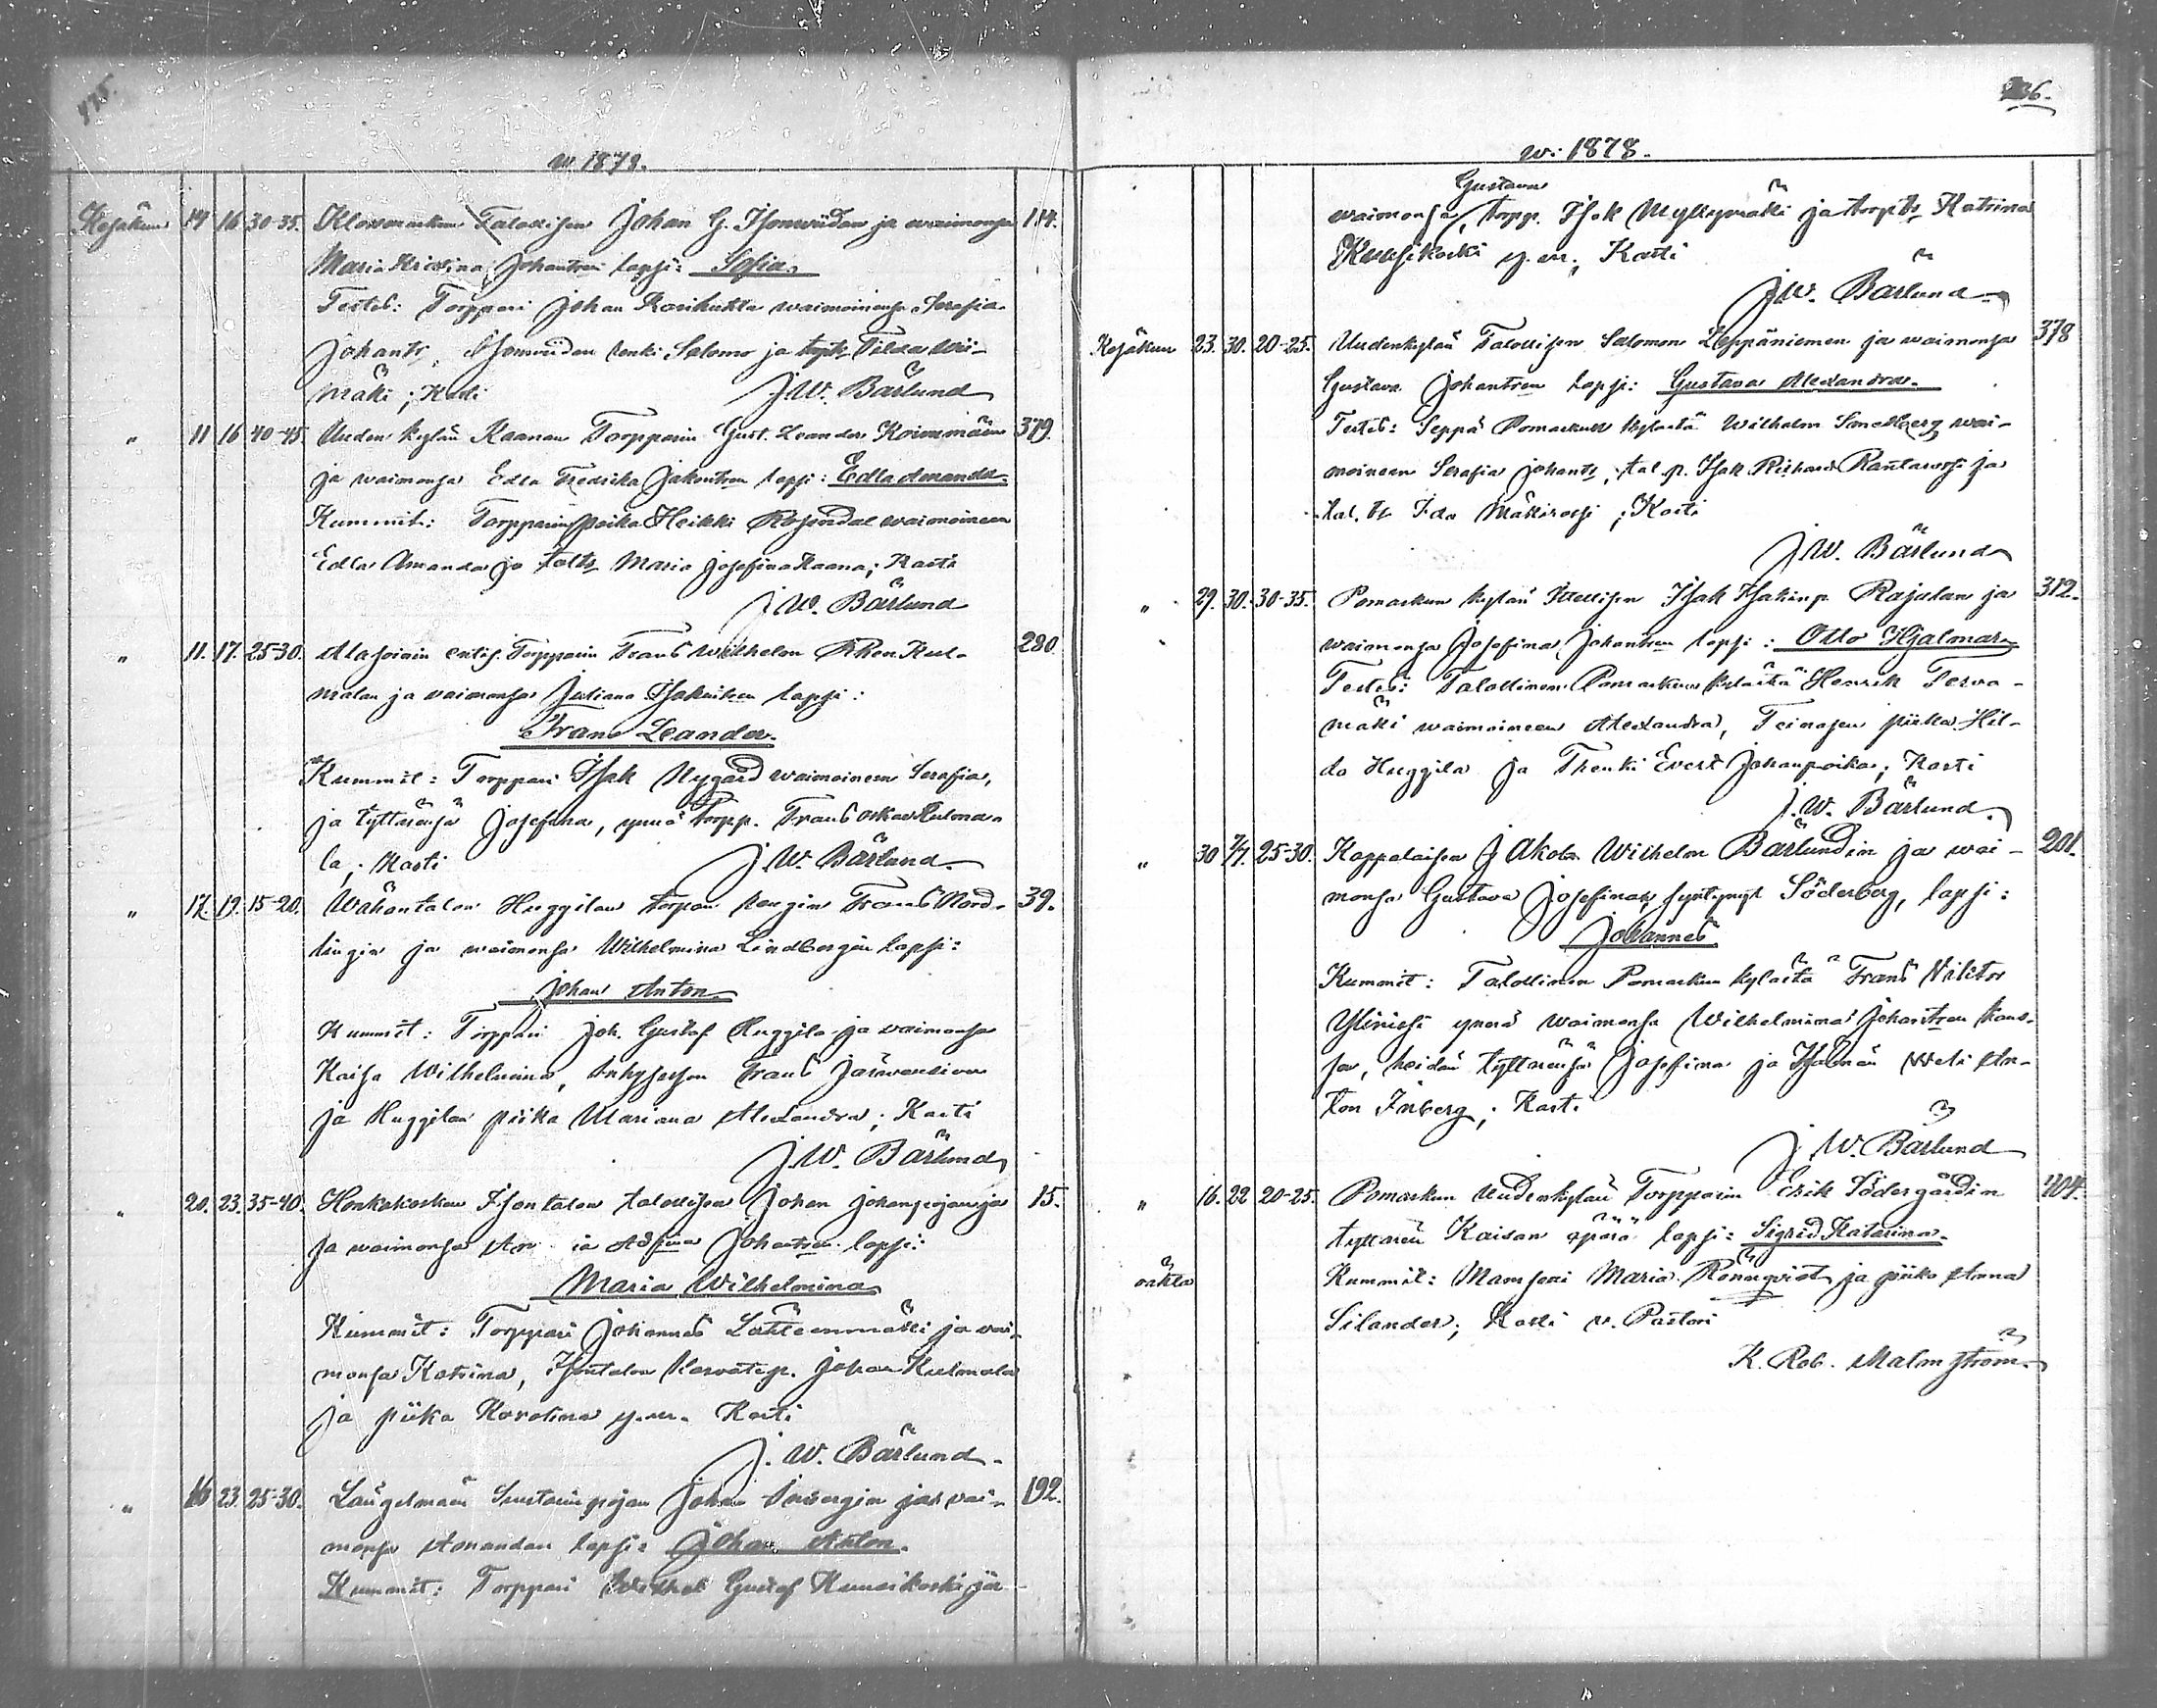 175.
w. 1878.
Kesäkuu 14 16 30-35. Klasmarkun Talollisen Johan G. Isonwiidan ja waimonsa 114.
Maria Kristina Johantren lapsi: Sofia.
Testes: Torppari Johan waimoinensa Serafia
Johantr, Isonwiidan renki Salomo ja Tilda Wii-
mäki; Kasti J.W. Bärlund
" 11 16 40-45 Uuden kylän Kaanan Torpparin Gust. Leander Koiwumäen 379.
ja waimonsa Edla Fredrika Jakontren lapsi: Edla Amanda.
Kummit: Torpparin poika Heikki Rosendal waimoineen
Edla Amanda ja taltr Maria Josefina Kaana; Kasti
J.W. Bärlund
" 11. 17. 25-30. Torpparin Frans Wilhelm Kul- 280
malan ja waimonsa Juliana Isakintren lapsi:
Frans Leander.
Kummit: Torppari Isak Nygård waimoineen Serafia,
ja tyttärensä Josefina, ynnä Torpp. Frans Oskar Kulma-
la; Kasti J.W. Bärlund
" 17. 19. 15-20. Wähäntalon Huggilan torpan rengin Frans Nord- 39.
lingin ja waimonsa Wilhelmina Lindbergin lapsi:
Johan Anton
Kummit: Torppari Joh. Gustaf Huggila ja waimonsa
Kaisa Wilhelmina, Frans Järwensiwu
ja Huggilan piika Mariana Alexandra; Kasti
J.W. Bärlund
" 20. 23. 35-40. Honkakosken Isontalon talollisen Johan Johanpojan ja 15.
ja waimonsa Johantren lapsi:
Maria Wilhelmina
Kummit: Torppari Johannes Lähteenmäki ja wai-
monsa Katrina, Isontalon Johan Kulmala
ja piika Karolina y.m. Kasti
J.W. Bärlund.
" 16 23. 25-30. Längelmäen Johan Inbergin ja wai- 192.
monsa Amandan lapsi: Johan Anton.
Kummit: Torppari Gustaf Kuusikoski ja
236.
w. 1878.
Gustava
waimonsa, torpp. Isak Myllymäki ja torptr Katrina
Kuusikoski y.m., Kasti
J.W. Bärlund
Kesäkuu 23. 30. 20-25. Uudenkylän Talollisen Salomon Leppäniemen ja waimonsa 378
Gustava Johantren lapsi: Gustava Alexandra.
Testes: Seppä Pomarkun kylästä Wilhelm Smedberg wai-
moineen Serafia Johantr, tal.p. Isak Richard Rantarossi ja
tal. tr Ida Mäkirossi; Kasti
J.W. Bärlund
" 29. 30. 30-35. Pomarkun kylän Itsellisen Isak Isakinp. Rajalan ja 312.
waimonsa Josefina Johantren lapsi: Otto Hjalmar
Testes: Talollinen Pomarkun kylästä Henrik Terwa-
mäki waimoineen Alexandra, piika Hil-
da Huggila ja renki Evert Johanpoika; Kasti
J.W. Bärlund.
" 30 7/7. 25-30. Kappalaisen Jakob Wilhelm Bärlundin ja wai- 201.
monsa Gustava Josefinan, syntynyt Söderberg, lapsi:
Johannes
Kummit: Talollinen Pomarkun kylästä Frans Viktor
Yliniesi ynnä waimonsa Wilhelmina Johantren kans-
sa, heidän tyttärensä Josefina ja An-
ton Inberg; Kasti
J.W. Bärlund
" 16. 22 20-25. Pomarkun Uudenkylän Torpparin Erik Södergårdin 404.
tyttären Kaisan äpärä lapsi: Sigrid Katarina.
Kummit: Mamseli Maria Rönnqvist ja piika Anna
Silander; Kasti v. Pastori
K. Rob. Malmström.